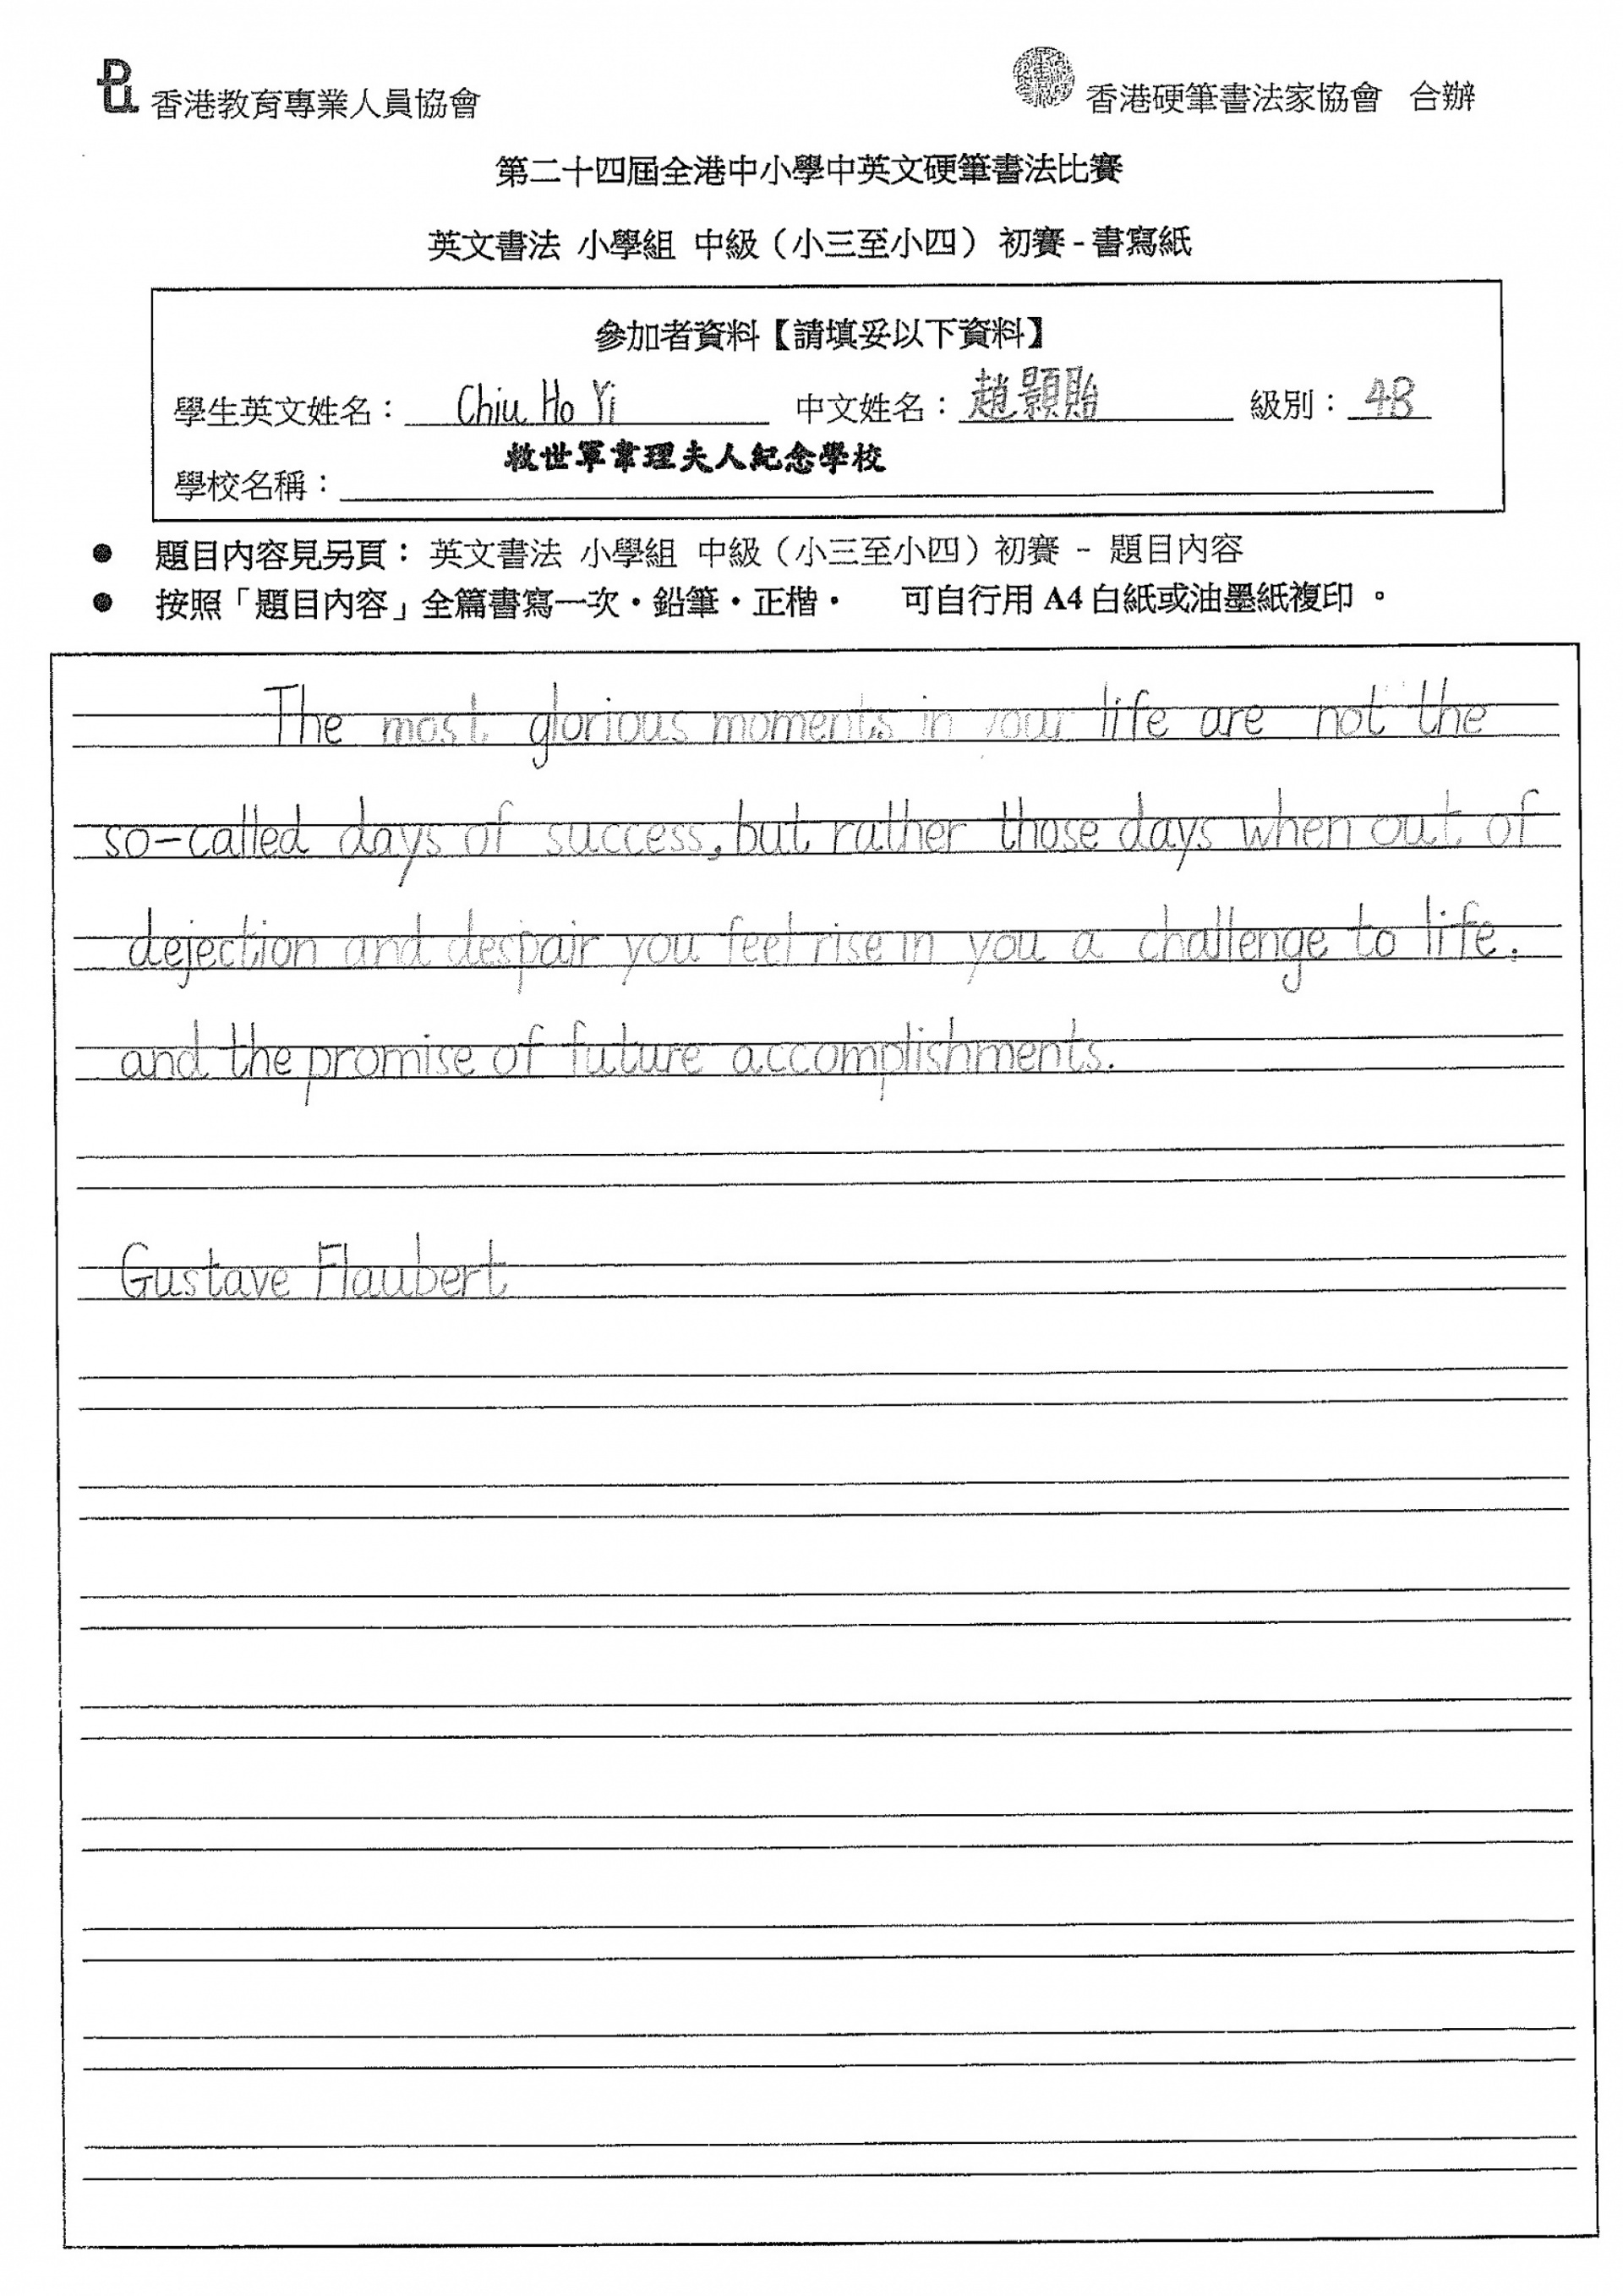 香港教育專業人員協會
香港硬筆書法家協會 合辦
第二十四屆全港中小學中英文硬筆書法比賽
英文書法 小學組 中級（小三至小四） 初賽 - 書寫紙
參加者資料【請填妥以下資料】
學生英文姓名： Chiu Ho Yi 中文姓名： 趙顥貽 級別： 4B
學校名稱： 救世軍韋理夫人紀念學校
● 題目內容見另頁： 英文書法 小學組 中級（小三至小四）初賽 - 題目內容
● 按照「題目內容」全篇書寫一次・鉛筆・正楷・ 可自行用 A4 白紙或油墨紙複印 。
The most glorious moments in your life are not the
so-called days of success, but rather those days when out of
dejection and despair you feel rise in you a challenge to life,
and the promise of future accomplishments.
Gustave Flaubert